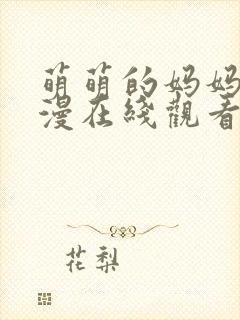 萌萌的妈妈
漫在线觀看
花梨